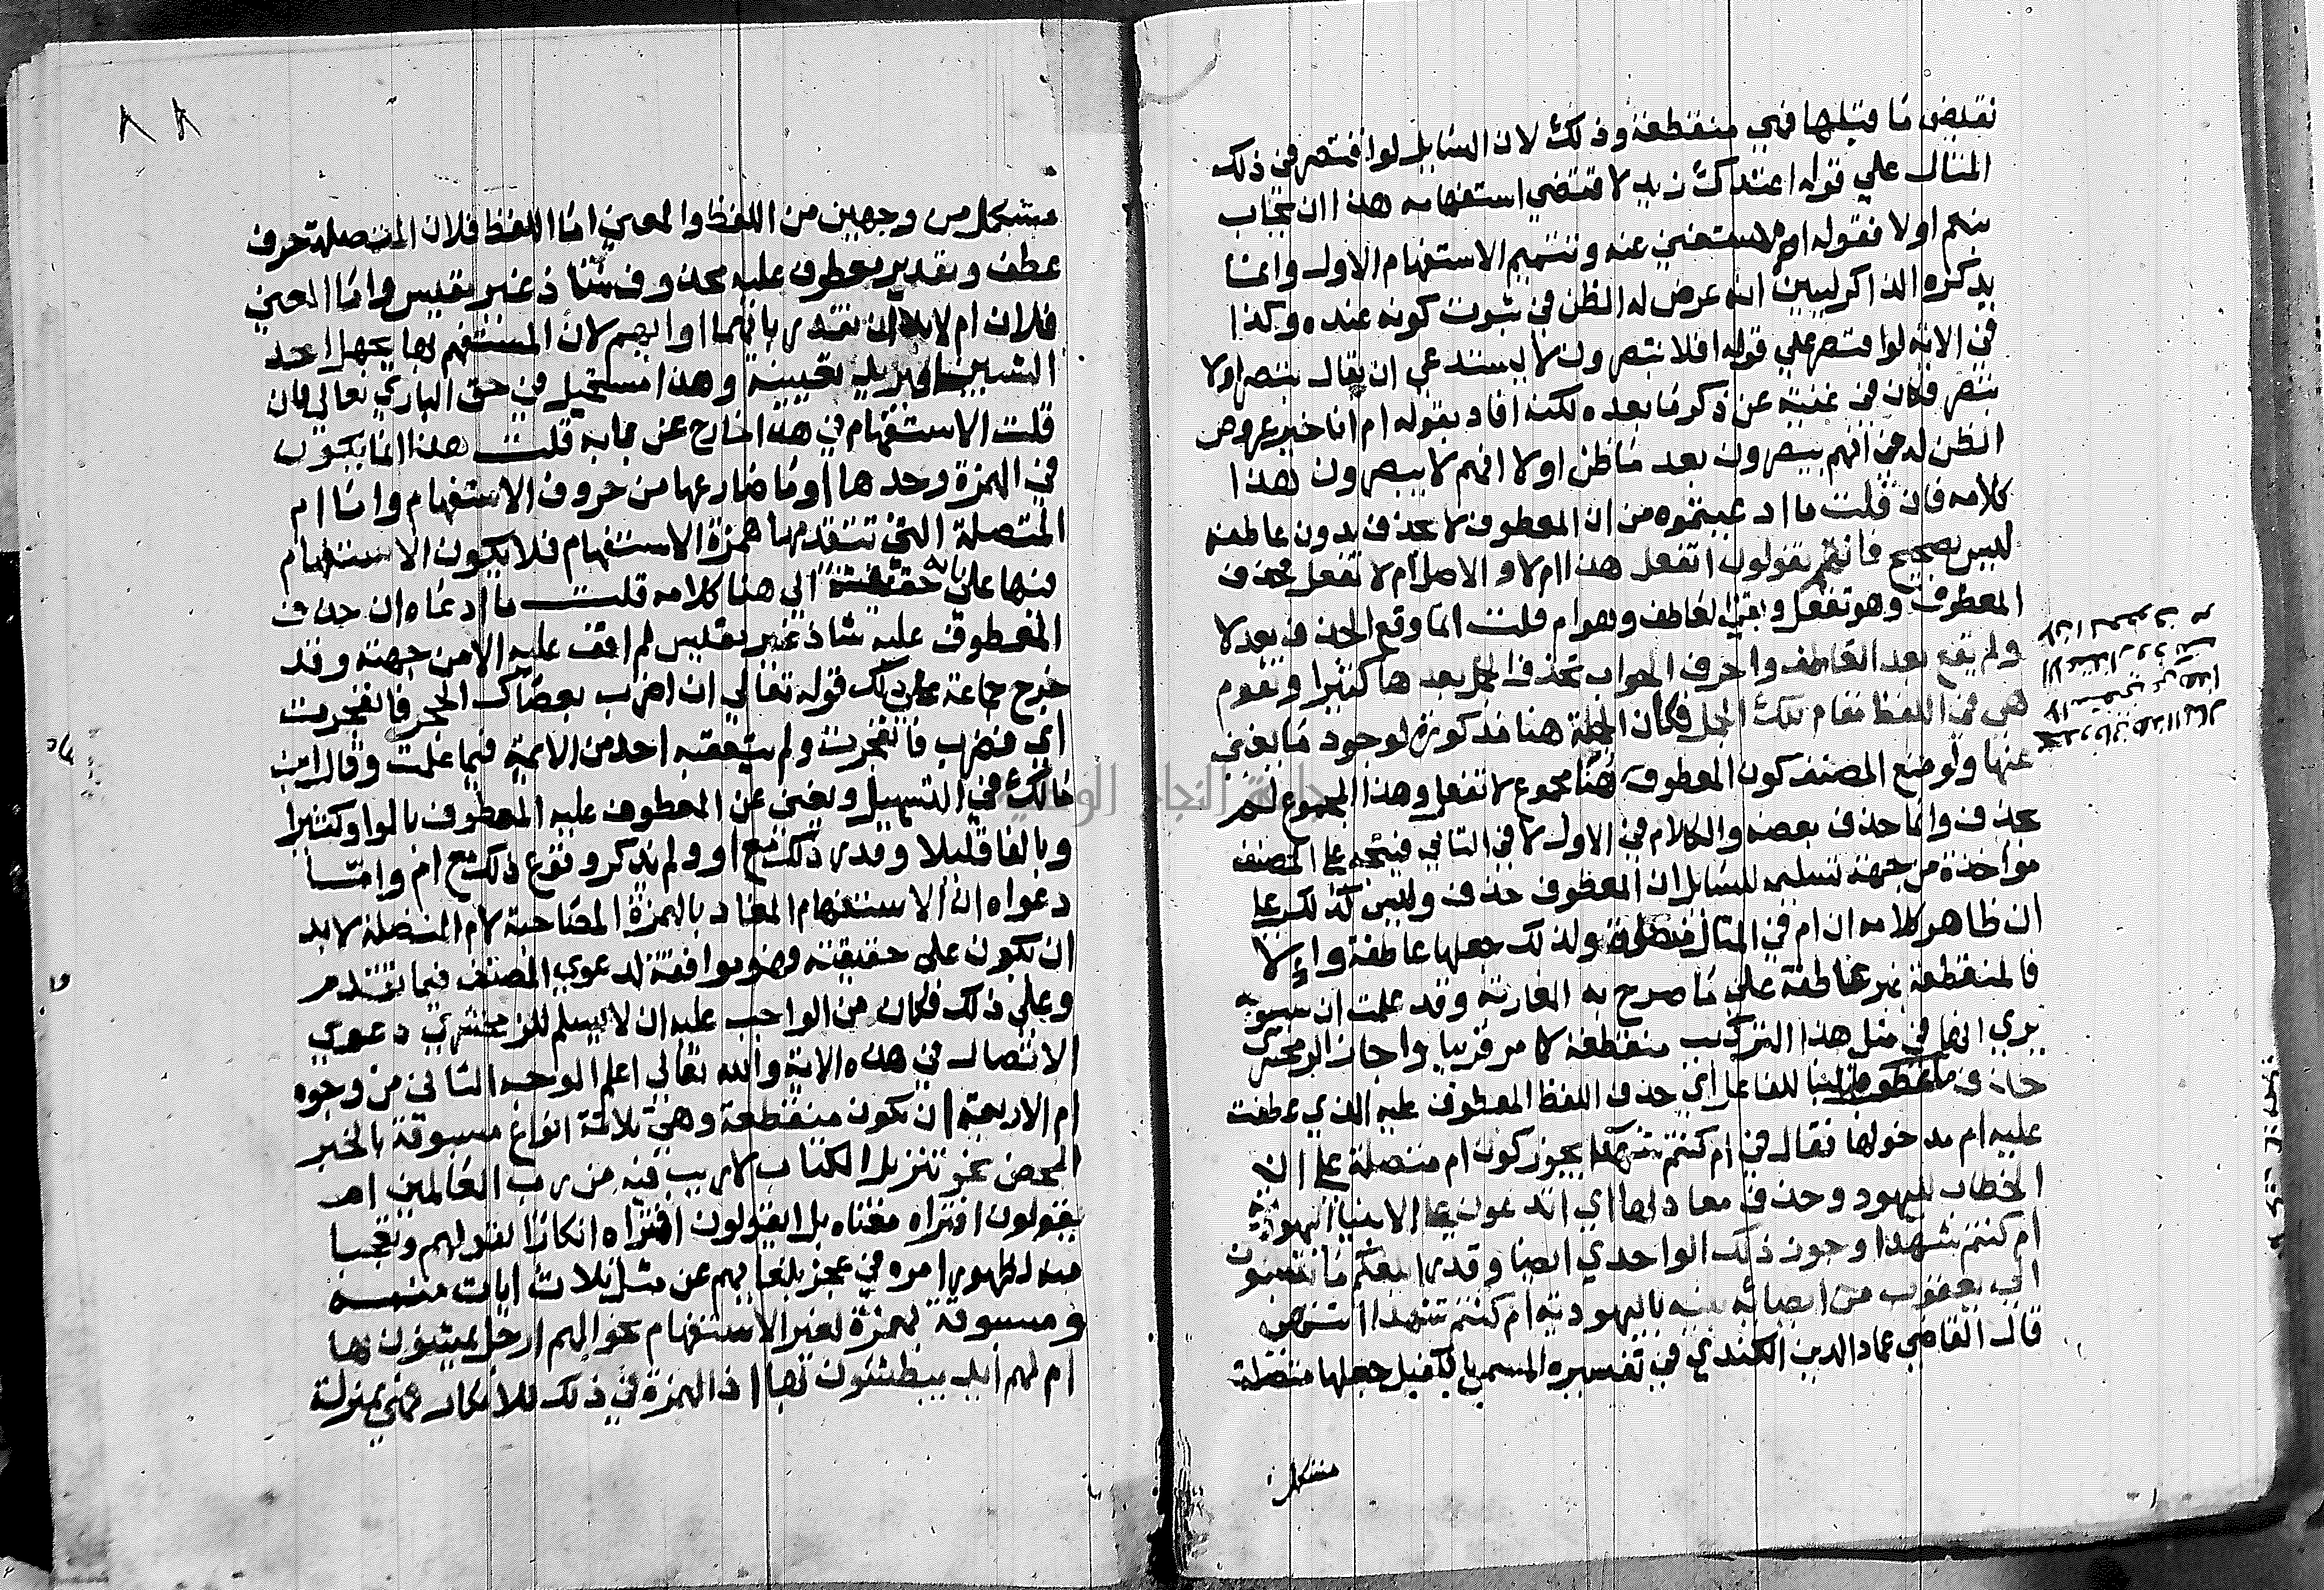 نقيض ما قبلها فهي منقطعة وذلك لان السايل لو اقتصر في ذلك
المثال علي قوله اعندك زيد لاقتضي استفهامه هذا ان يجاب
بنعم اولا فقوله ام لا مستغني عنه وتتميم الاستفهام الاول وانما
يذكره الذاكر ليبين انه عرض له الظن في ثبوت كونه عنده وكذا
في الاية لو اقتصر علي قوله افلا تبصرون لاستدعي ان يقال نبصر اولا
نبصر فكان في غنية عن ذكر ما بعده لكنه افاد بقوله ام انا خير عروض
الظن له في انهم يبصرون بعد ما ظن اولا انهم لا يبصرون هذا
كلامه فان قلت ما ادعيتموه من ان المعطوف لا يحذف بدون عاطفه
ليس بصحيح فانهم يقولون اتفعل هذا ام لا والاصل ام لا تفعل فحذف
المعطوف وهو تفعل وبقي العاطف وهو ام قلت انما وقع الحذف بعد لا
ولم يقع بعد العاطف واحرف الجواب تحذف الجمل بعدها كثيرا وتقوم
هي في اللفظ مقام تلك الجمل فكان الجملة هنا مذكورة لوجود ما يغني
عنها ولو منع المصنف كون المعطوف هنا مجموع لا تفعل وهذا المجموع لم
يحذف وانما حذف بعضه والكلام في الاول لا في الثاني فيتجه علي المصنف
مواخذة من جهة تسليمه للسايل ان المعطوف حذف وليس كذلك علي
ان ظاهر كلامه ان ام في المثال متصلة ولذلك جعلها عاطفة والا
فالمنقطعة غير عاطفة علي ما صرح به المغاربة وقد علمت ان سيبويه
يري انها في مثل هذا التركيب منقطعة كما مر قريبا واجاز الزمخشري
حذف ما عطف عليه اي حذف اللفظ المعطوف عليه الذي عطفت
عليه ام مدخولها فقال في ام كنتم شهدا يجوز كون ام متصلة علي ان
الخطاب لليهود وحذف معادلها اي اتدعون علي الانبيا اليهودية
ام كنتم شهدا وجوز ذلك الواحدي ايضا وقدر ابلغكم ما تنسبون
الي يعقوب من ايصائه بنيه باليهودية ام كنتم شهدا انتهي
قال القاضي عماد الدين الكندي في تفسيره المسمي بالكفيل جعلها متصلة
مشكل
٨٨
مشكل من وجهين من اللفظ والمعني اما اللفظ فلان المتصلة حرف
عطف وتقدير معطوف عليه محذوف شاذ غير مقيس واما المعني
فلان ام لابد ان تقدر بايهما او ايهم لان المستفهم بها يجهل احد
الشيين ويريد تعيينه وهذا مستحيل في حق الباري تعالي فان
قلت الاستفهام في هذا خارج عن بابه قلت هذا انما يكون
في الهمزة وحدها او ما ضارعها من حروف الاستفهام واما ام
المتصلة التي تتقدمها همزة الاستفهام فلا يكون الاستفهام
فيها علي بابه حقيقة الي هنا كلامه قلت ما ادعاه ان حذف
المعطوف عليه شاذ غير مقيس لم اقف عليه الا من جهته وقد
خرج جماعة علي ذلك قوله تعالي ان اضرب بعصاك الحجر فانفجرت
اي فضرب فانفجرت ولم يتعقبه احد من الايمة فيما علمت وقال ابن
مالك في التسهيل ويغني عن المعطوف عليه المعطوف بالواو كثيرا
وبالفا قليلا وقدر ذلك مع او ولم يذكر وقوع ذلك مع ام واما
دعواه ان الاستفهام المفاد بالهمزة المصاحبة لام المتصلة لابد
ان يكون علي حقيقته فهو موافقة لدعوي المصنف فيما تقدم
وعلي ذلك فكان من الواجب عليه ان لا يسلم للزمخشري دعوي
الاتصال في هذه الاية والله تعالي اعلم الوجه الثاني من وجوه
ام الاربعة ان تكون منقطعة وهي ثلاثة انواع مسبوقة بالخبر
المحض نحو تنزيل الكتاب لا ريب فيه من رب العالمين ام
يقولون افتراه معناه بل ايقولون افتراه انكارا لقولهم وتعجبا
منه لظهور امره في عجز بلغايهم عن مثل ثلاث ايات منه
ومسبوقة بهمزة لغير الاستفهام نحو الهم ارجل يمشون بها
ام لهم ايد يبطشون بها اذ الهمزة في ذلك للانكار فهي بمنزلة